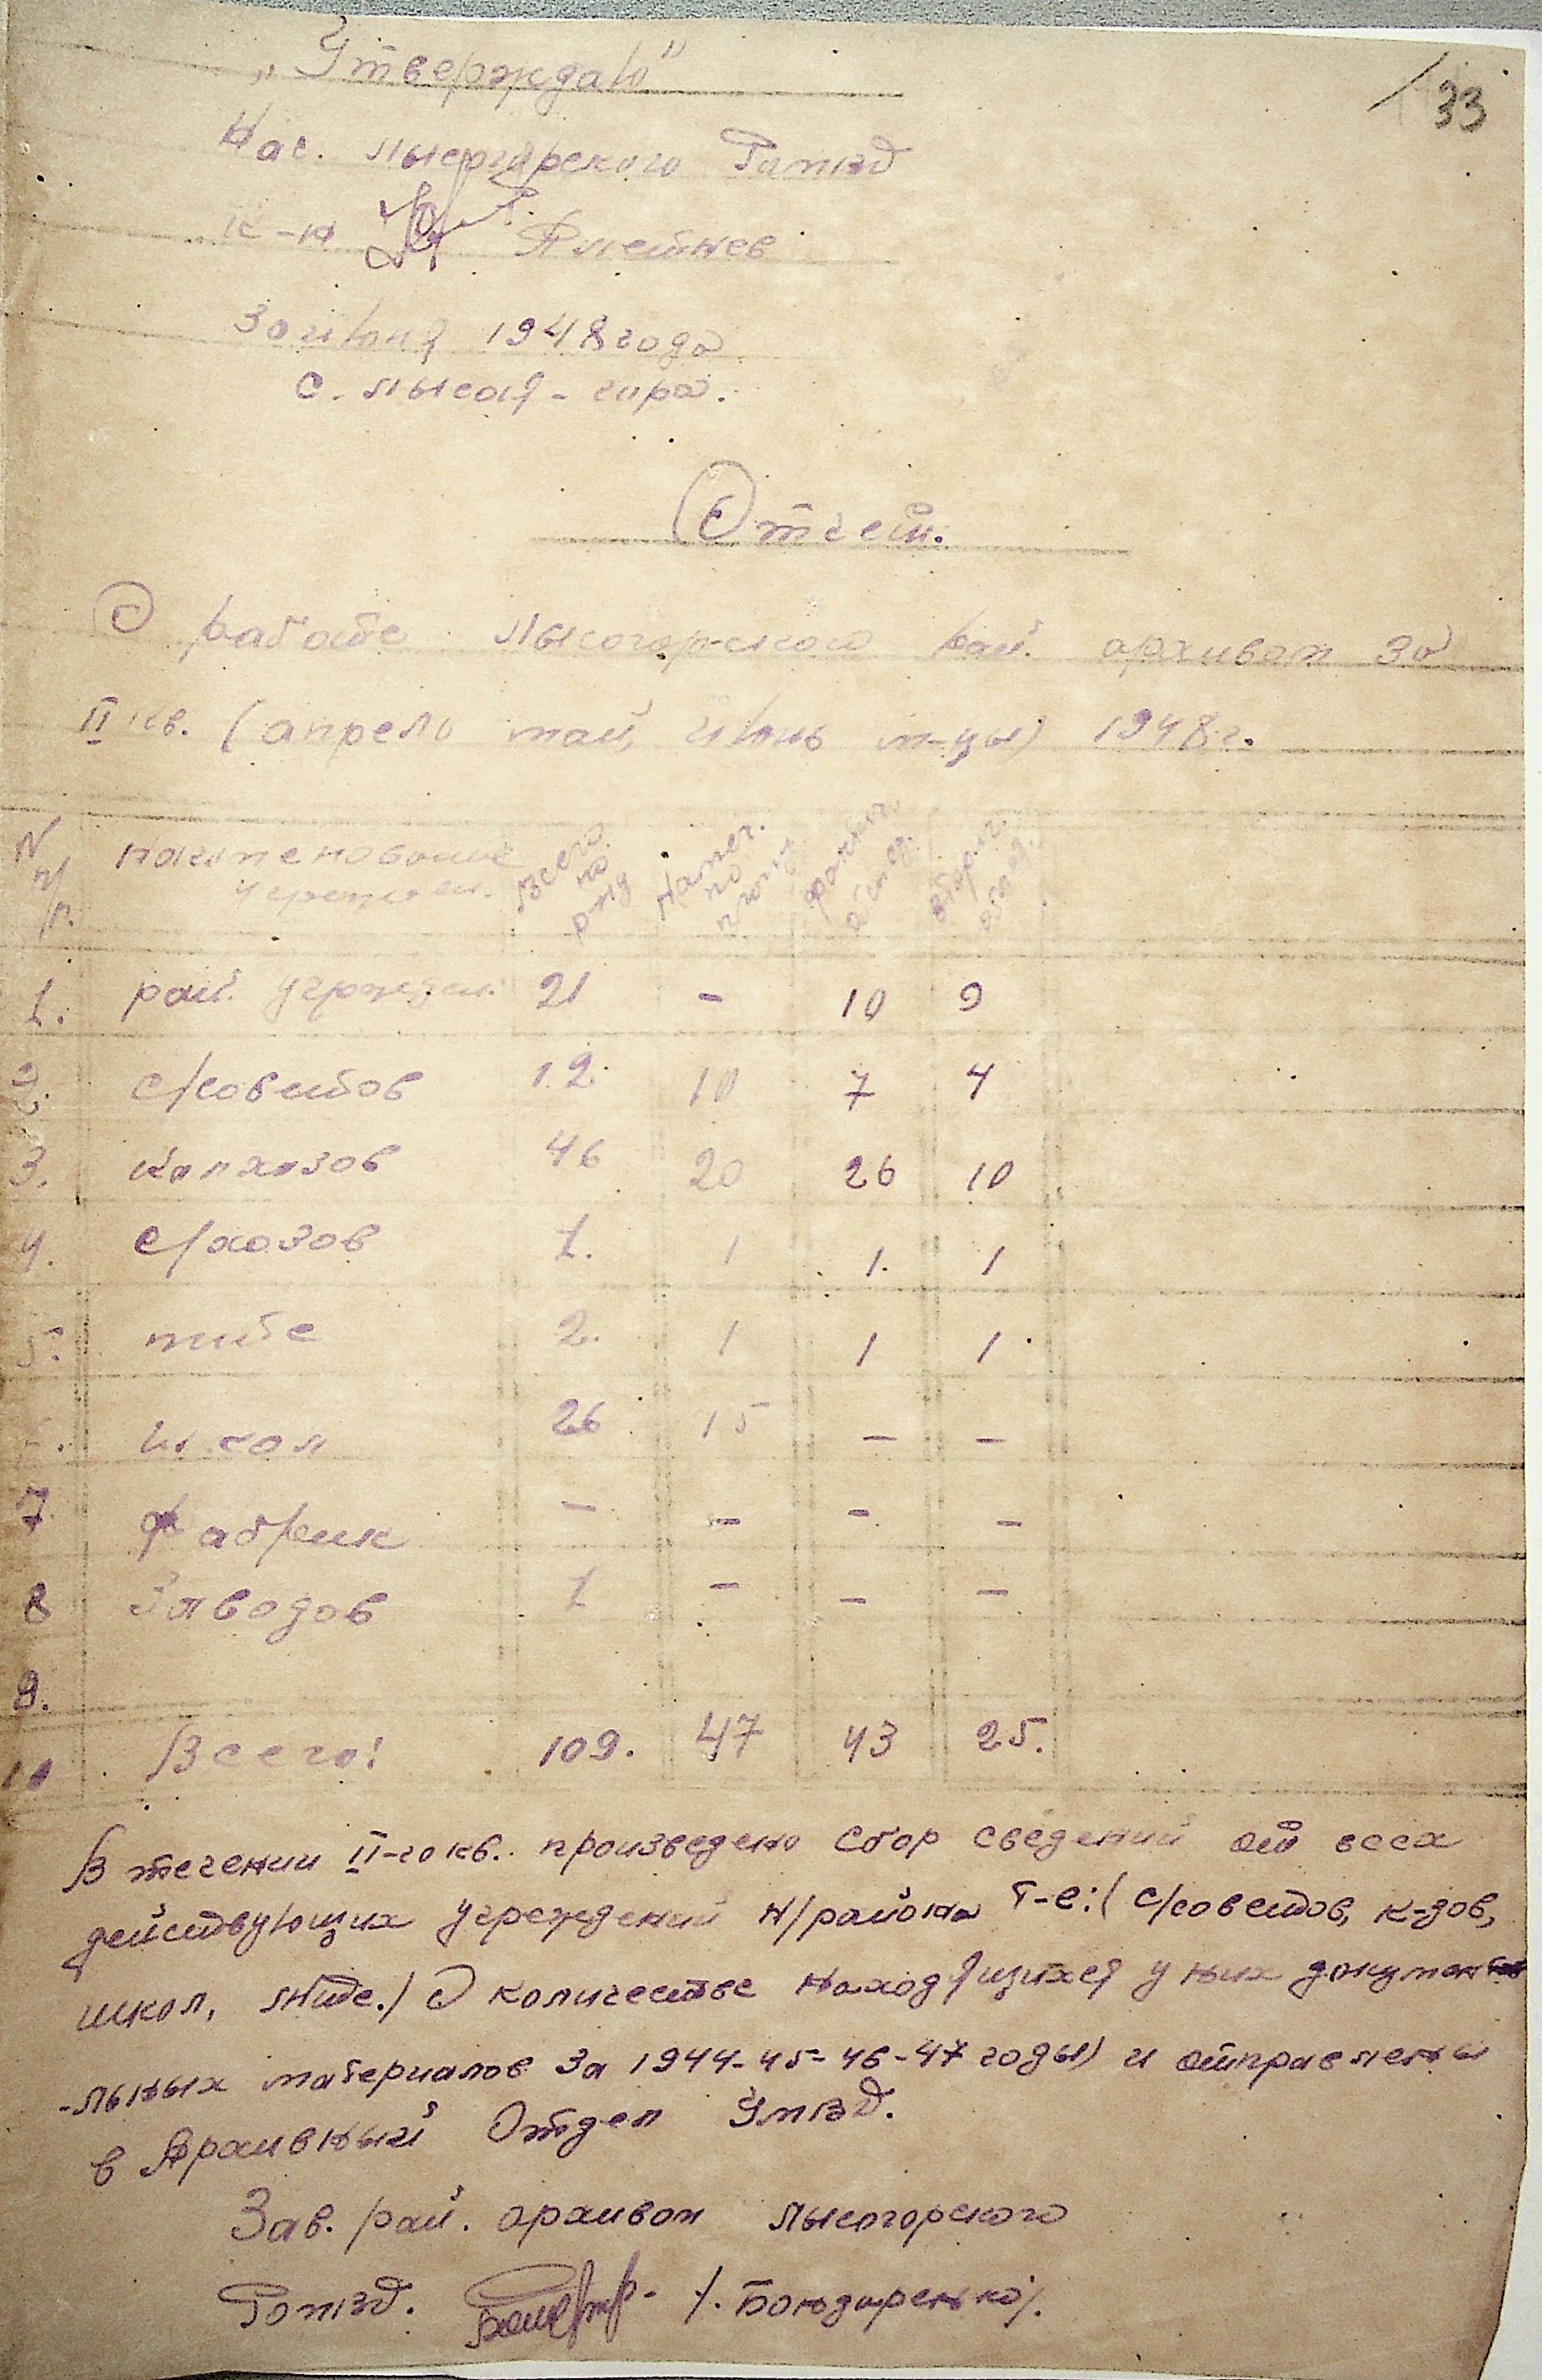 33
„Утверждаю"
Нач. Лысогорского РоМВД
К-н Алейнев
30 июня 1948 года
с. Лысая-гора.
Отчет.
О работе Лысогорского рай. архивом за
II кв. (апрель май, июнь м-цы) 1948 г.
N п/п. наименование учрежден. Всего по р-ну Намеч. по плану фактич. обслед. вторич. обслед.
1. рай. учрежден. 21 - 10 9
2. с/советов 12 10 7 4
3. колхозов 46 20 26 10
4. с/хозов 1. 1 1. 1
5. мтс 2. 1 1 1
6. школ 26 15 - -
7. фабрик - - - -
8 Заводов 1 - - -
9.
10 Всего: 109. 47 43 25.
В течении II-го кв. произведено сбор сведений от всех
действующих учреждений н/района т-е: (с/советов, к-зов,
школ, мтс.) О количестве находящихся у них документа
-льных материалов за 1944-45-46-47 годы) и отправлены
в Архивный Отдел УМВД.
Зав. рай. архивом Лысогорского
РоМВД. /. Бондаренко/.